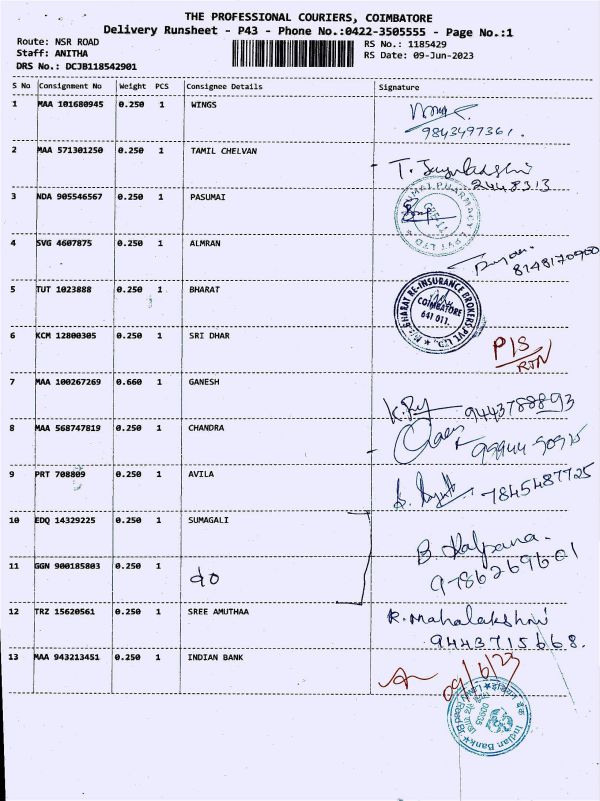 THE PROFESSIONAL COURIERS, COIMBATORE
Delivery Runsheet - P43 - Phone No.:0422-3505555 - Page No.:1
Route: NSR ROAD
RS No.: 1185429
Staff: ANITHA
RS Date: 09-Jun-2023
DRS No.: DCJB118542901
S No Consignment No Weight PCS Consignee Details Signature
1 MAA 101680945 0.250 1 WINGS
9843497361.
2 MAA 571301250 0.250 1 TAMIL CHELVAN
2448313
3 NDA 905546567 0.250 1 PASUMAI
4 SVG 4607875 0.250 1 ALMRAN
8148170900
5 TUT 1023888 0.250 1 BHARAT
BHARAT RE-INSURANCE BROKERS PVT LTD.
COIMBATORE
641 011.
6 KCM 12800305 0.250 1 SRI DHAR
P/S
RTN
7 MAA 100267269 0.660 1 GANESH
9443788893
8 MAA 568747819 0.250 1 CHANDRA
9 PRT 708809 0.250 1 AVILA
7845487725
10 EDQ 14329225 0.250 1 SUMAGALI
B. Kalpana.
11 GGN 900185803 0.250 1 do
9786269601
12 TRZ 15620561 0.250 1 SREE AMUTHAA
R. Mahalakshmi
9443715668.
13 MAA 943213451 0.250 1 INDIAN BANK
09/6/23
Indian Bank